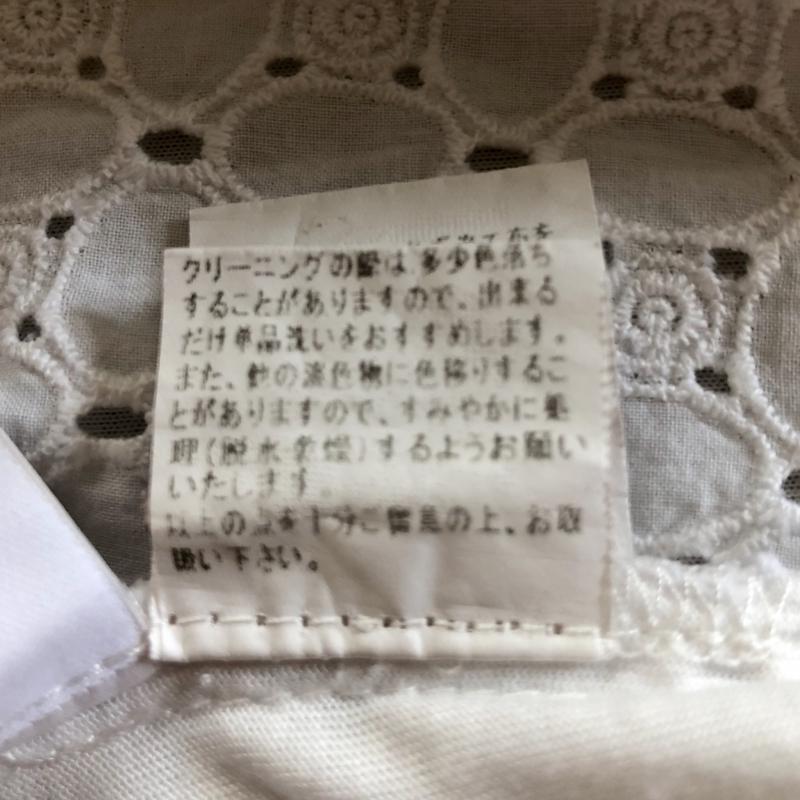 あて布を
クリーニングの際は、多少色落ち
することがありますので、出来る
だけ単品洗いをおすすめします。
また、他の淡色物に色移りするこ
とがありますので、すみやかに処
理(脱水乾燥)するようお願い
いたします。
以上の点を十分ご留意の上、お取
扱い下さい。